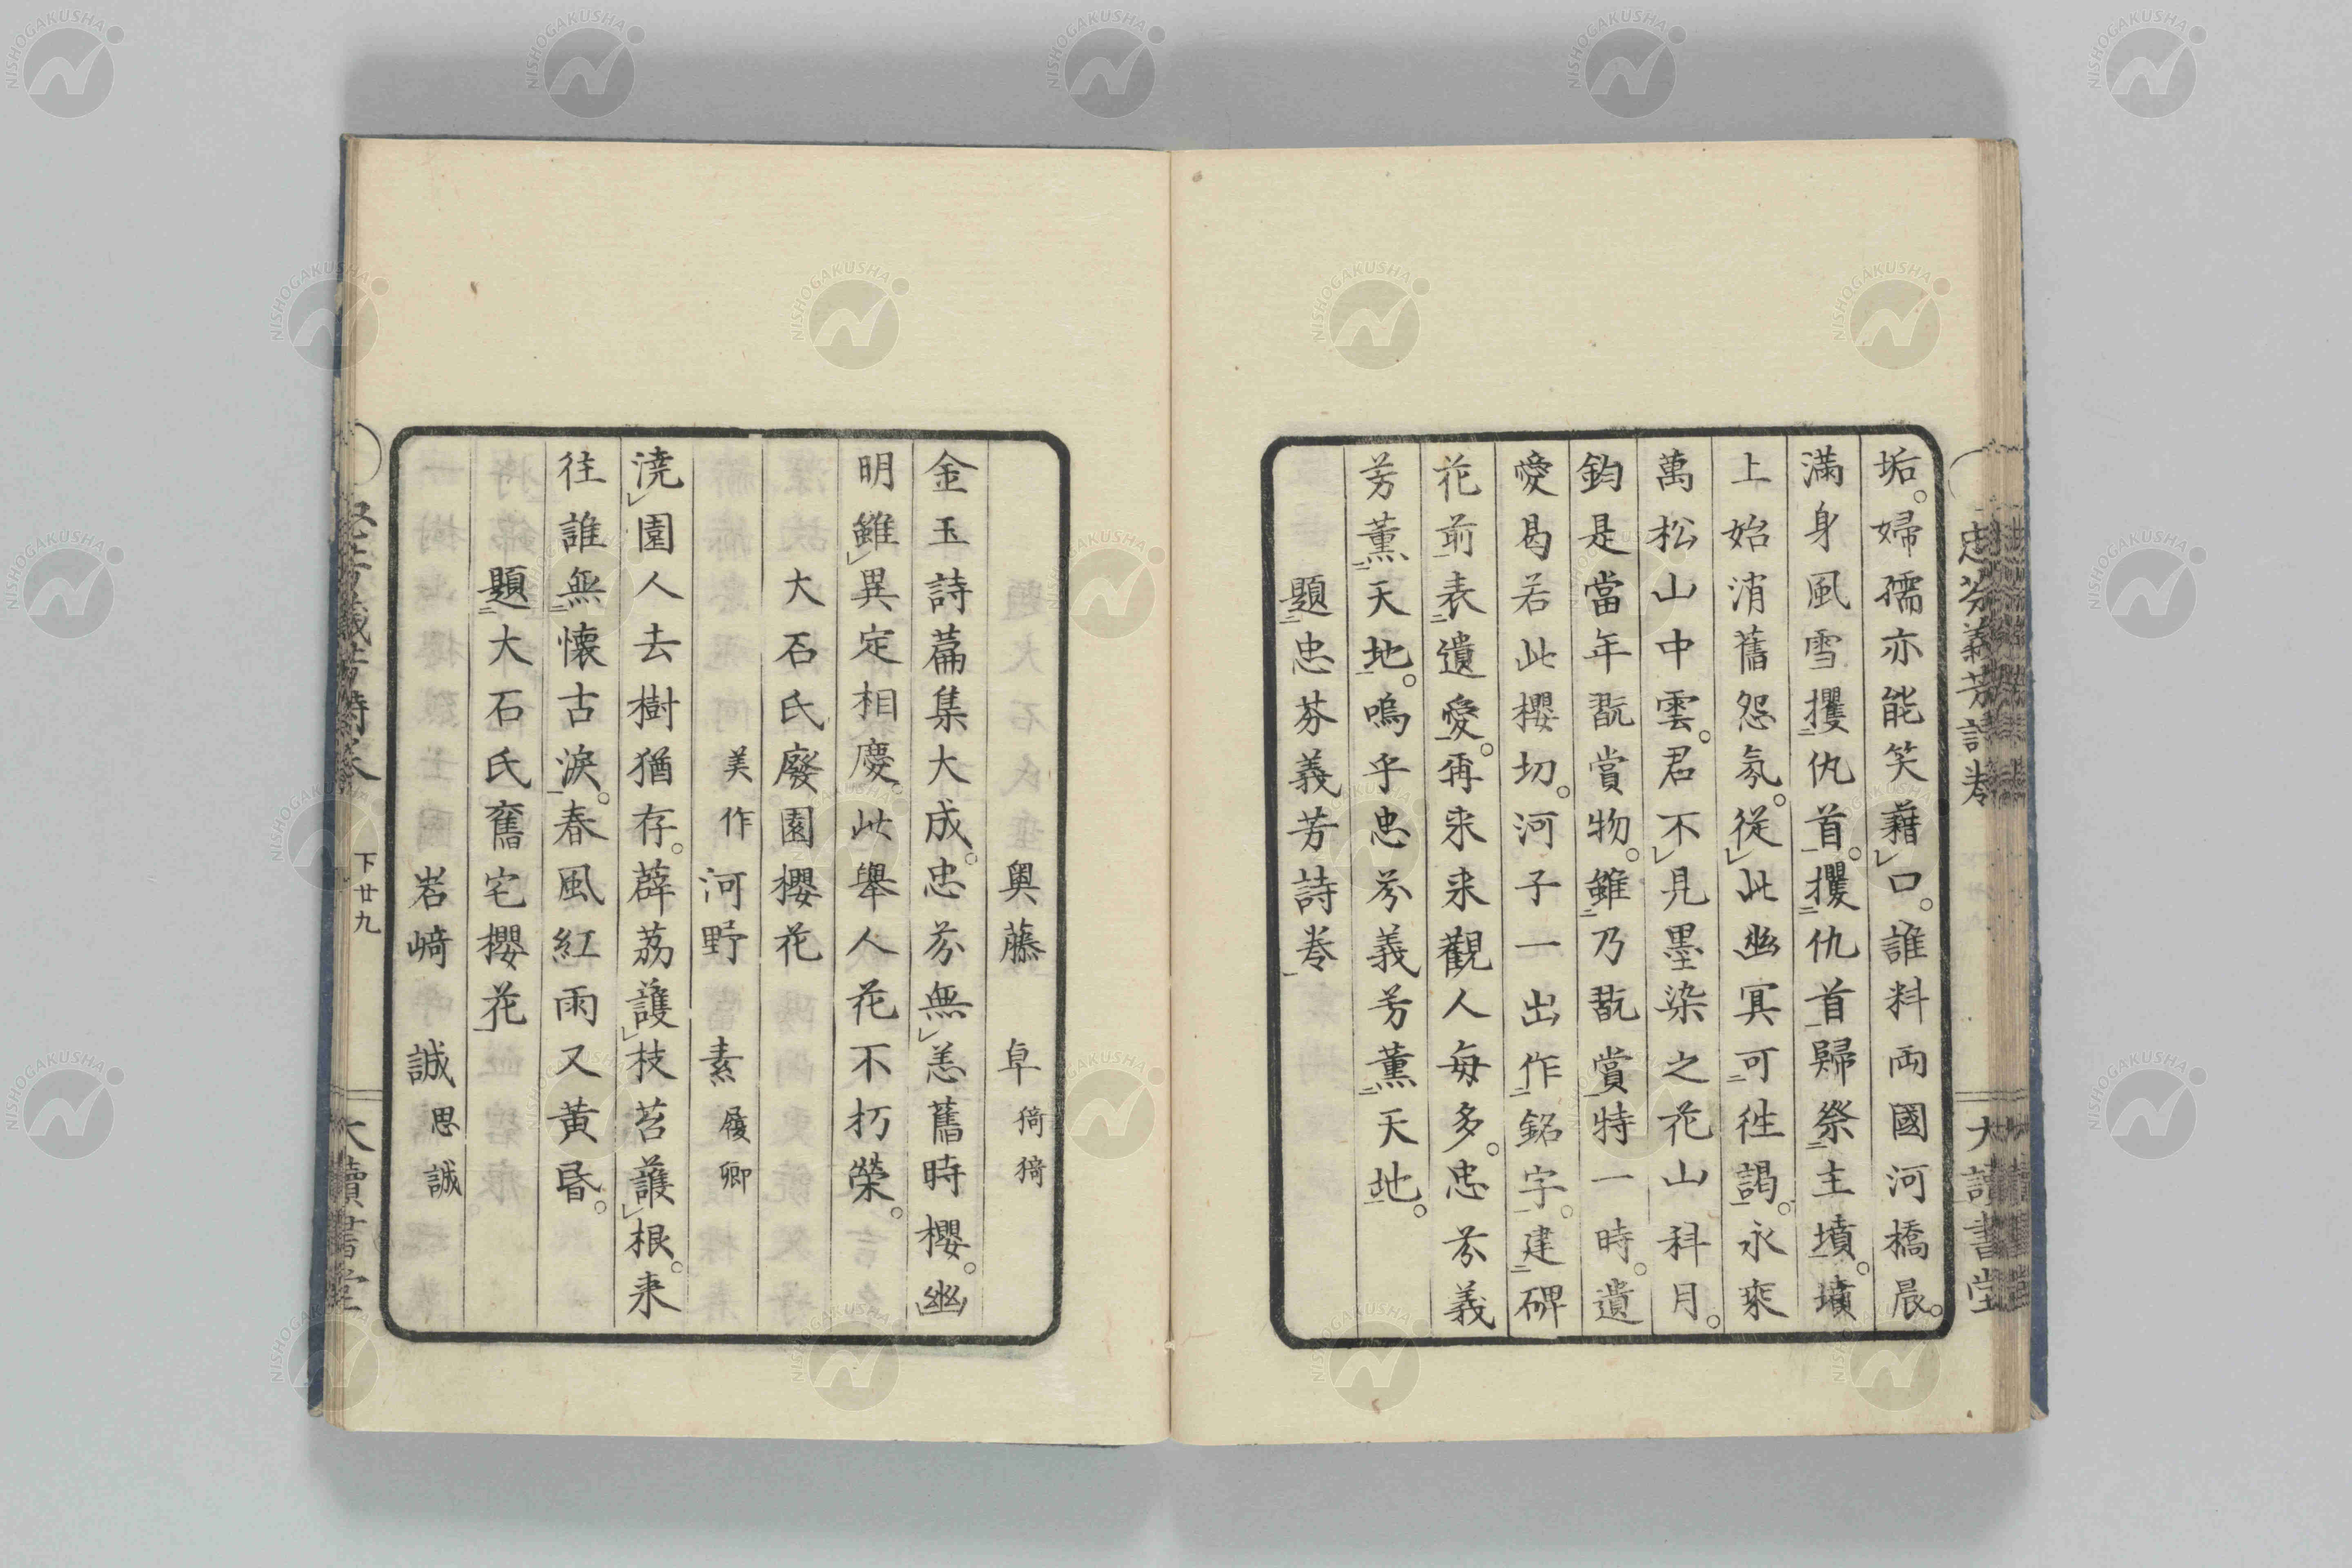 垢。婦孺亦能笑藉口。誰料兩國河橋晨。
滿身風雪攫仇首。攫仇首歸祭主墳。墳
上始消舊怨氛。從此幽冥可徃謁。永棄
萬松山中雲。君不見墨染之花山科月。
鈞是當年翫賞物。雖乃翫賞特一時。遺
愛曷若此櫻切。河子一出作銘字。建碑
花前表遺愛。再来来觀人每多。忠芬義
芳薰天地。嗚乎忠芬義芳薰天地。
題忠芬義芳詩巻
忠芬義芳詩巻
大讀書堂
奥藤 卓 猗猗
金玉詩篇集大成。忠芬無恙舊時櫻。幽
明雖異定相慶。此舉人花不朽榮。
大石氏廢園櫻花
美作 河野 素 履卿
澆園人去樹猶存。薜荔護枝苔護根。来
往誰無懷古淚。春風紅雨又黄昏。
題大石氏舊宅櫻花
岩﨑 誠 思誠
下廿九
大讀書堂
NISHOGAKUSHA